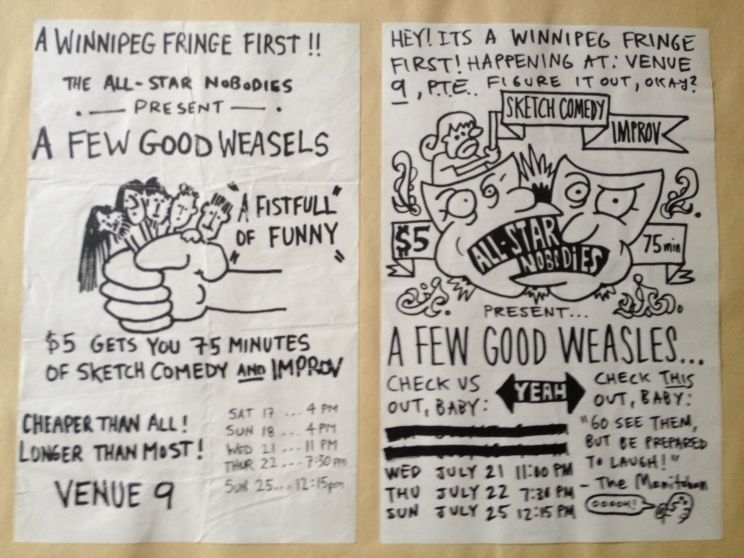 A WINNIPEG FRINGE FIRST!!
THE ALL-STAR NOBODIES
PRESENT
A FEW GOOD WEASELS
"A FISTFULL"
"OF FUNNY"
$5 GETS YOU 75 MINUTES
OF SKETCH COMEDY AND IMPROV
CHEAPER THAN ALL!
LONGER THAN MOST!
VENUE 9
SAT 17 ... 4 PM
SUN 18 ... 4 PM
WED 21 ... 11 PM
THUR 22 ... 7:30 PM
SUN 25 ... 12:15pm
HEY! ITS A WINNIPEG FRINGE
FIRST! HAPPENING AT: VENUE
9, P.T.E. FIGURE IT OUT, OKAY?
SKETCH COMEDY
IMPROV
$5
75 min
ALL-STAR
NOBODIES
PRESENT...
A FEW GOOD WEASLES...
CHECK US
OUT, BABY:
YEAH
CHECK THIS
OUT, BABY:
WED JULY 21 11:00 PM
THU JULY 22 7:30 PM
SUN JULY 25 12:15 PM
"GO SEE THEM,
BUT BE PREPARED
TO LAUGH!"
- The Manitoban
OOOOH!